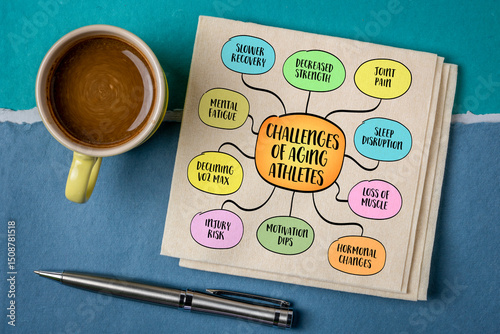 SLOWER
RECOVERY
DECREASED
STRENGTH
JOINT
PAIN
MENTAL
FATIGUE
CHALLENGES
OF AGING
ATHLETES
SLEEP
DISRUPTION
DECLINING
VO2 MAX
LOSS OF
MUSCLE
INJURY
RISK
MOTIVATION
DIPS
HORMONAL
CHANGES
Adobe Stock | #1508781518